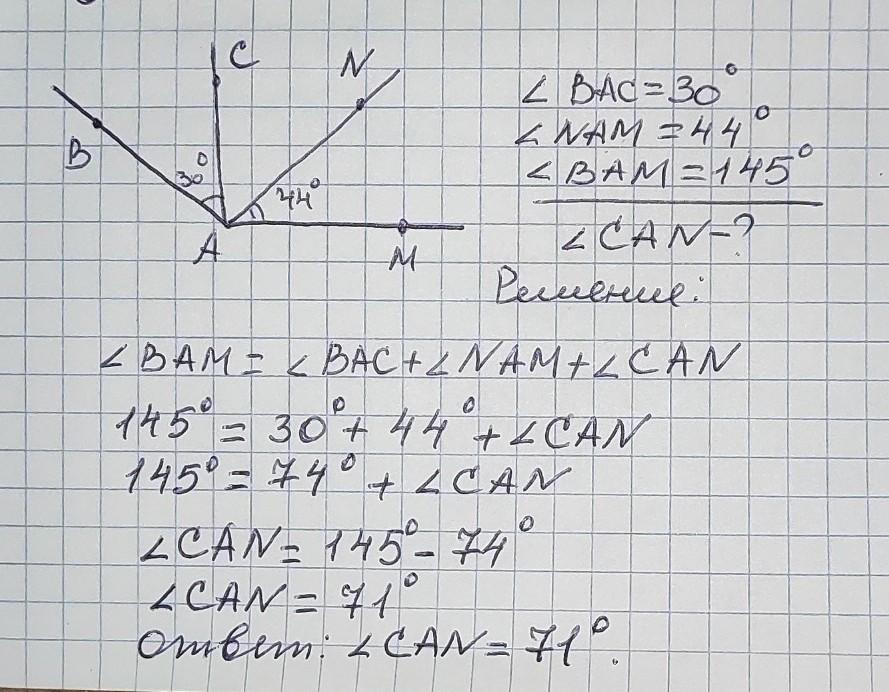 C
N
B
30°
44°
A
M
∠ BAC = 30°
∠ NAM = 44°
∠ BAM = 145°
∠ CAN - ?
Решение:
∠ BAM = ∠ BAC + ∠ NAM + ∠ CAN
145° = 30° + 44° + ∠ CAN
145° = 74° + ∠ CAN
∠ CAN = 145° - 74°
∠ CAN = 71°
Ответ: ∠ CAN = 71°.